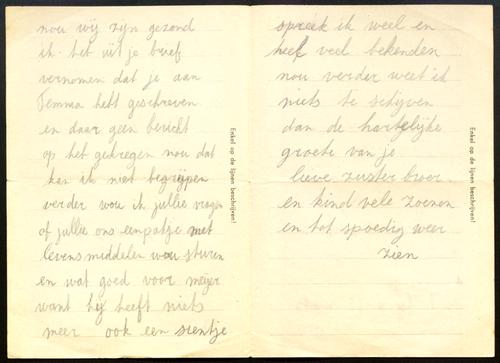 nou wij zijn gezond
ik het uit je brief
vernomen dat je aan
Femma hebt geschreven
en daar geen bericht
op het gekregen nou dat
kan ik niet begrijpen
verder wou ik jullie vragen
of jullie ons een patje met
levensmiddelen wou sturen
en wat goed voor meijer
want hij heeft niets
meer ook een sientje
Enkel op de lijnen beschrijven!
spreek ik weel en
heef veel bekenden
nou verder weet ik
niets te schijven
dan de hartelijke
groete van je
lieve zuster broer
en kind vele zoenen
en tot spoedig weer
zien
Enkel op de lijnen beschrijven!